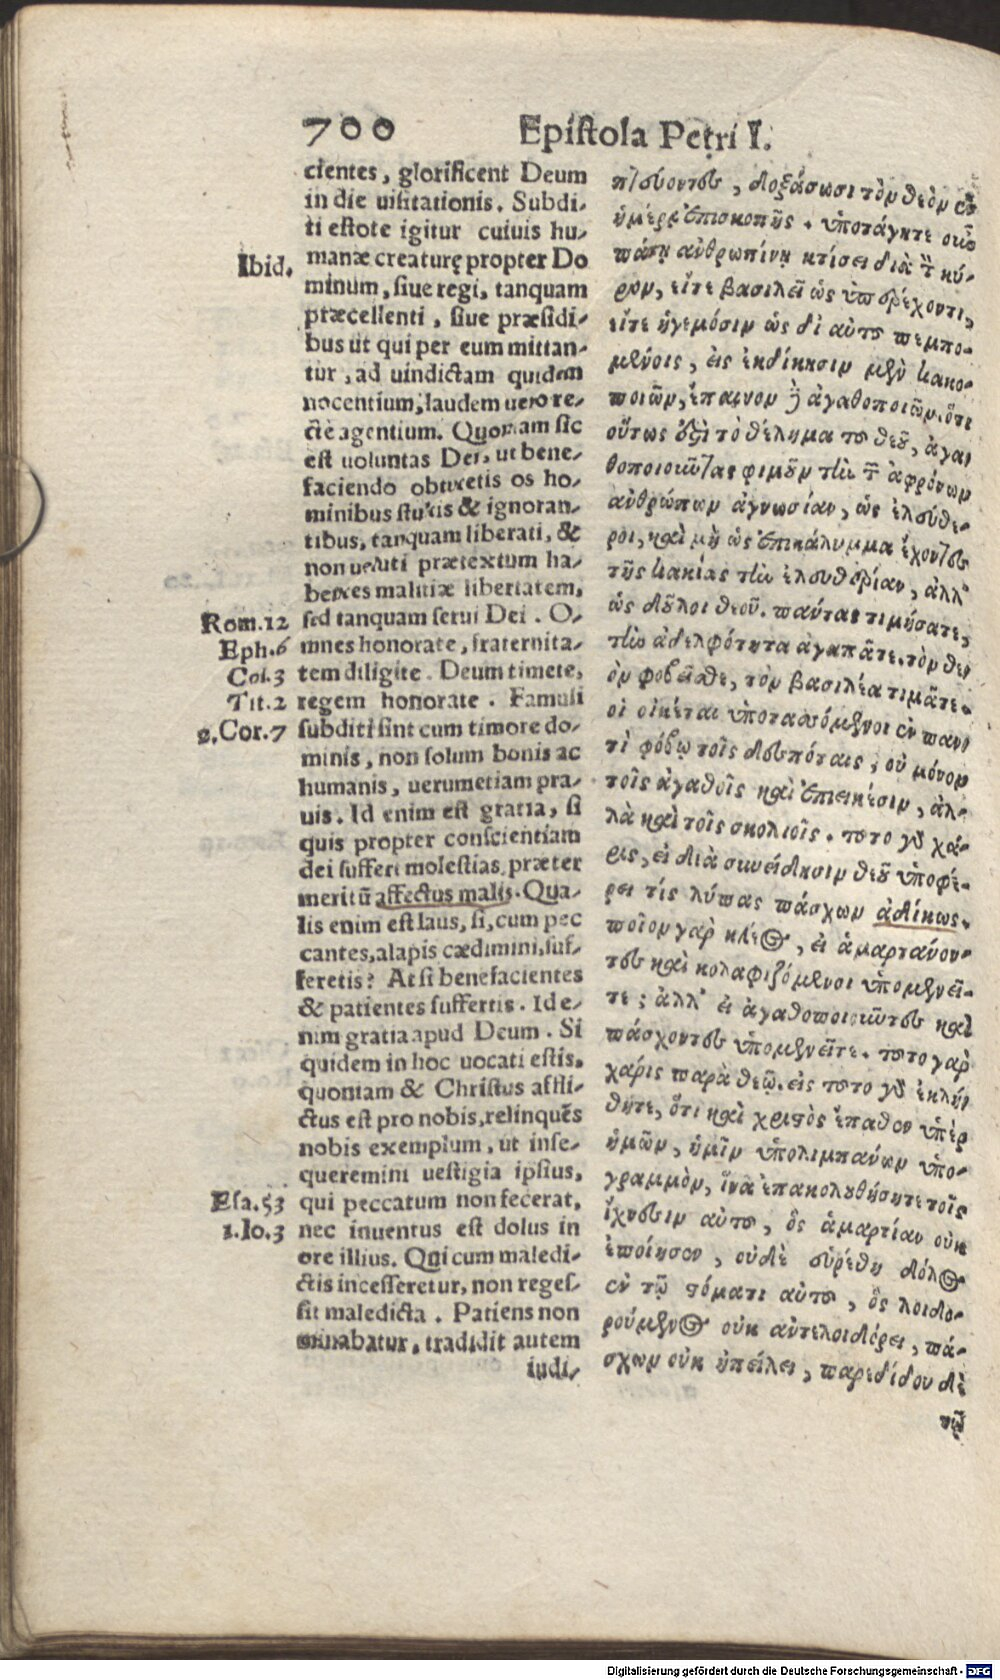 700 Epistola Petri I.
cientes, glorificent Deum
in die uisitationis. Subdi-
ti estote igitur cuiuis hu-
Ibid.
manæ creaturę propter Do
minum, siue regi, tanquam
præcellenti, siue præsidi-
bus ut qui per eum mittan-
tur, ad uindictam quidem
nocentium, laudem uero re-
cte agentium. Quoniam sic
est uoluntas Dei, ut bene-
faciendo obturetis os ho-
minibus stultis & ignoran-
tibus, tanquam liberati, &
non ueluti prætextum ha-
bentes malitiæ libertatem,
Rom.12
sed tanquam serui Dei. O-
Eph.6
mnes honorate, fraternita-
Col.3
tem diligite. Deum timete,
Tit.2
regem honorate. Famuli
2.Cor.7
subditi sint cum timore do-
minis, non solum bonis ac
humanis, uerumetiam pra-
uis. Id enim est gratia, si
quis propter conscientiam
dei suffert molestias, præter
meritū affectus malis. Qua-
lis enim est laus, si, cum pec
cantes, alapis cædimini, suf-
feretis? At si benefacientes
& patientes suffertis. Id e-
nim gratia apud Deum. Si
quidem in hoc uocati estis,
quoniam & Christus affli-
ctus est pro nobis, relinquēs
nobis exemplum, ut inse-
queremini uestigia ipsius,
Esa.53
qui peccatum non fecerat,
1.Io.3
nec inuentus est dolus in
ore illius. Qui cum maledi-
ctis incesseretur, non reges-
sit maledicta. Patiens non
minabatur, tradidit autem
iudi-
πτεύοντες, δοξάσωσι τὸν θεὸν ἐν
ἡμέρᾳ ἐπισκοπῆς. ὑποτάγητε οὖν
πάσῃ ἀνθρωπίνῃ κτίσει διὰ τ̀ κύ-
ριον, εἴτε βασιλεῖ ὡς ὑπερέχοντι,
εἴτε ἡγεμόσιν ὡς δι αὐτοῦ πεμπο-
μένοις, εἰς ἐκδίκησιν μὲν κακο-
ποιῶν, ἔπαινον δ̀ ἀγαθοποιῶν. ὅτι
οὕτως ἐστὶ τὸ θέλημα τοῦ θεοῦ, ἀγα
θοποιοῦντας φιμοῦν τὴν τ̃ ἀφρόνων
ἀνθρώπων ἀγνωσίαν, ὡς ἐλεύθε-
ροι, καὶ μὴ ὡς ἐπικάλυμμα ἔχοντες
τῆς κακίας τὴν ἐλευθερίαν, ἀλλ᾽
ὡς δοῦλοι θεοῦ. πάντας τιμήσατε,
τὴν ἀδελφότητα ἀγαπᾶτε. τὸν θε
ὸν φοβεῖσθε, τὸν βασιλέα τιμᾶτε.
οἱ οἰκέται ὑποτασσόμενοι ἐν παν
τὶ φόβῳ τοῖς δεσπόταις, οὐ μόνον
τοῖς ἀγαθοῖς καὶ ἐπιεικέσιν, ἀλ-
λὰ καὶ τοῖς σκολιοῖς. τοῦτο γὰρ χά-
ρις, εἰ διὰ συνείδησιν θεοῦ ὑποφέ-
ρει τίς λύπας πάσχων ἀδίκως.
ποῖον γὰρ κλέος, εἰ ἁμαρτάνον-
τες καὶ κολαφιζόμενοι ὑπομενεῖ-
τε; ἀλλ᾽ εἰ ἀγαθοποιοῦντες καὶ
πάσχοντες ὑπομενεῖτε. τοῦτο γὰρ
χάρις παρὰ θεῷ. εἰς τοῦτο γὰρ ἐκλή
θητε, ὅτι καὶ χριστὸς ἔπαθεν ὑπὲρ
ἡμῶν, ἡμῖν ὑπολιμπάνων ὑπο-
γραμμὸν, ἵνα ἐπακολουθήσητε τοῖς
ἴχνεσιν αὐτοῦ, ὃς ἁμαρτίαν οὐκ
ἐποίησεν, οὐδὲ εὑρέθη δόλος
ἐν τῷ στόματι αὐτοῦ, ὃς λοιδο-
ρούμενος οὐκ ἀντελοιδόρει, πά-
σχων οὐκ ἠπείλει, παρεδίδου δὲ
τῷ
Digitalisierung gefördert durch die Deutsche Forschungsgemeinschaft - DFG